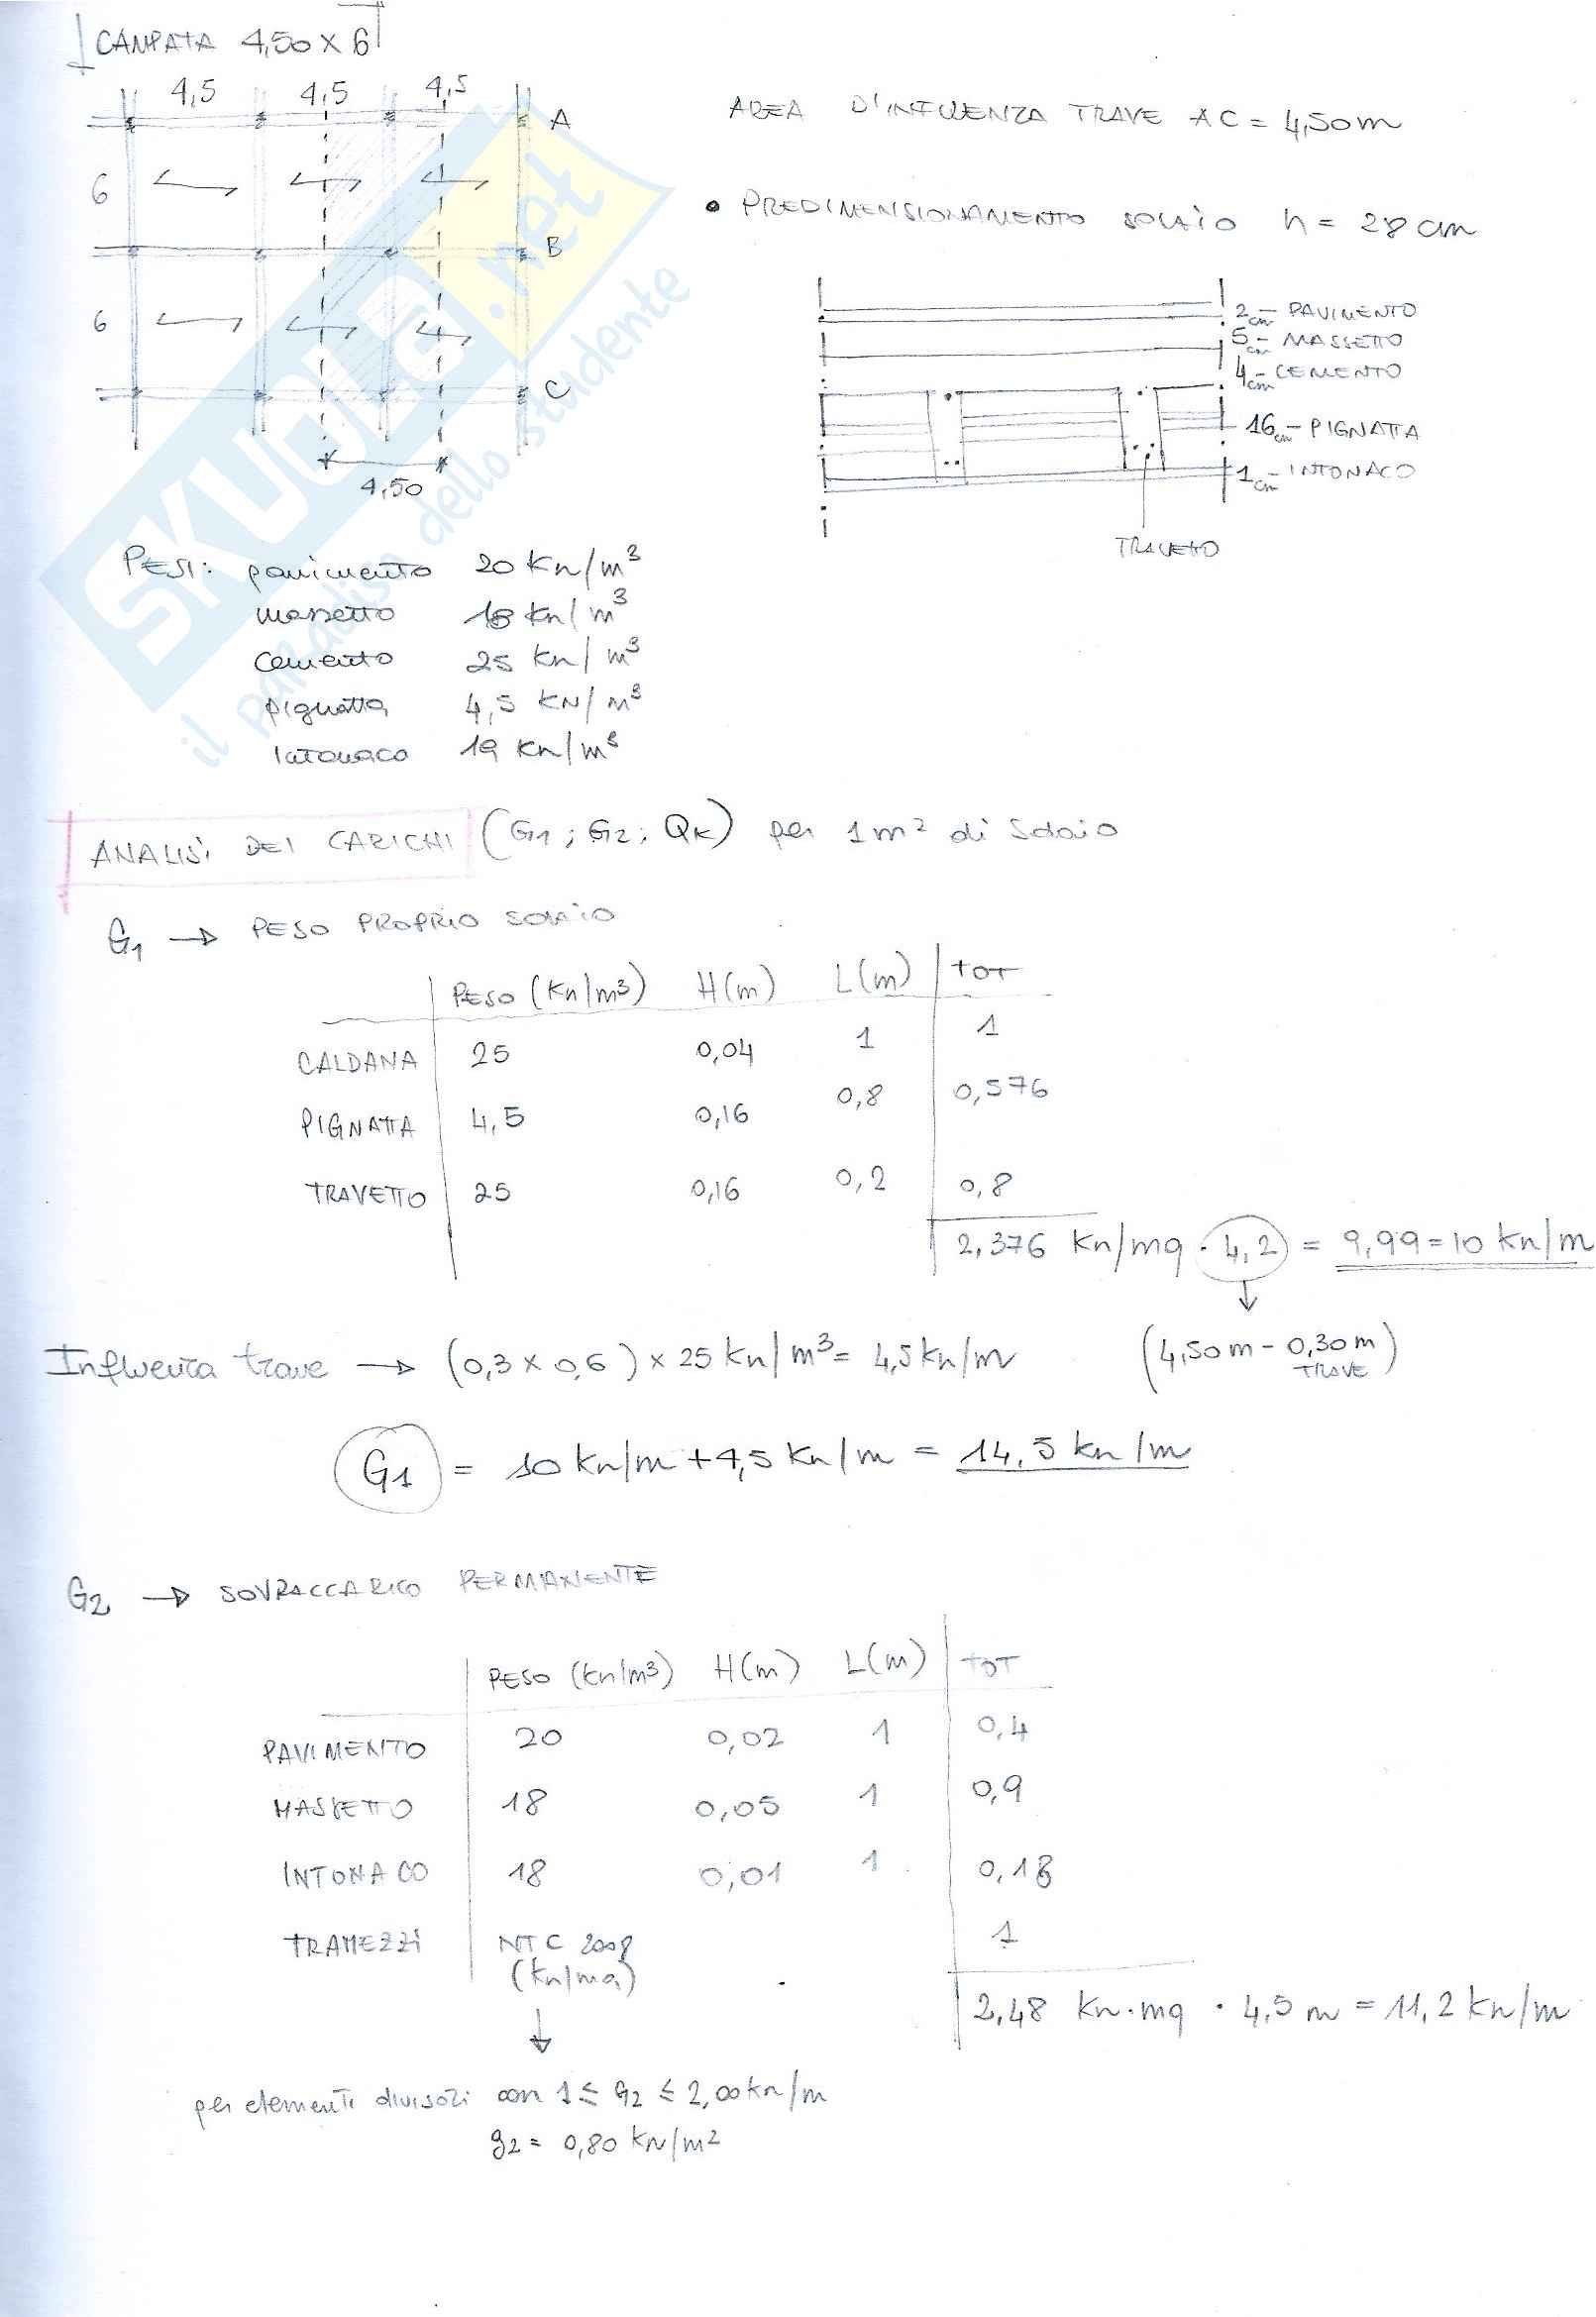 CAMPATA 4,50 x 6
4,5 4,5 4,5
A
6
B
6
C
4,50
AREA D'INFLUENZA TRAVE AC = 4,50m
• PREDIMENSIONAMENTO SOLAIO h = 28 cm
2cm - PAVIMENTO
5cm - MASSETTO
4cm - CEMENTO
16cm - PIGNATTA
1cm - INTONACO
TRAVETTO
PESI: pavimento 20 Kn/m³
massetto 18 Kn/m³
cemento 25 Kn/m³
pignatta 4,5 KN/m³
Intonaco 19 Kn/m³
ANALISI DEI CARICHI (G1; G2; QK) per 1m² di Solaio
G1 → PESO PROPRIO SOLAIO
PESO (Kn/m³) H(m) L(m) TOT
CALDANA 25 0,04 1 1
PIGNATTA 4,5 0,16 0,8 0,576
TRAVETTO 25 0,16 0,2 0,8
2,376 Kn/mq · 4,2 = 9,99 = 10 Kn/m
(4,50m - 0,30m)
TRAVE
Influenza trave → (0,3 x 0,6) x 25 Kn/m³ = 4,5 kn/m
G1 = 10 Kn/m + 4,5 Kn/m = 14,5 kn/m
G2 → SOVRACCARICO PERMANENTE
PESO (Kn/m³) H(m) L(m) TOT
PAVIMENTO 20 0,02 1 0,4
MASSETTO 18 0,05 1 0,9
INTONACO 18 0,01 1 0,18
TRAMEZZI NTC 2008 1
(Kn/mq)
2,48 Kn·mq · 4,5 m = 11,2 Kn/m
per elementi divisori con 1 ≤ G2 ≤ 2,00 Kn/m
g2 = 0,80 KN/m²
SKUOLA.net
il paradiso dello studente